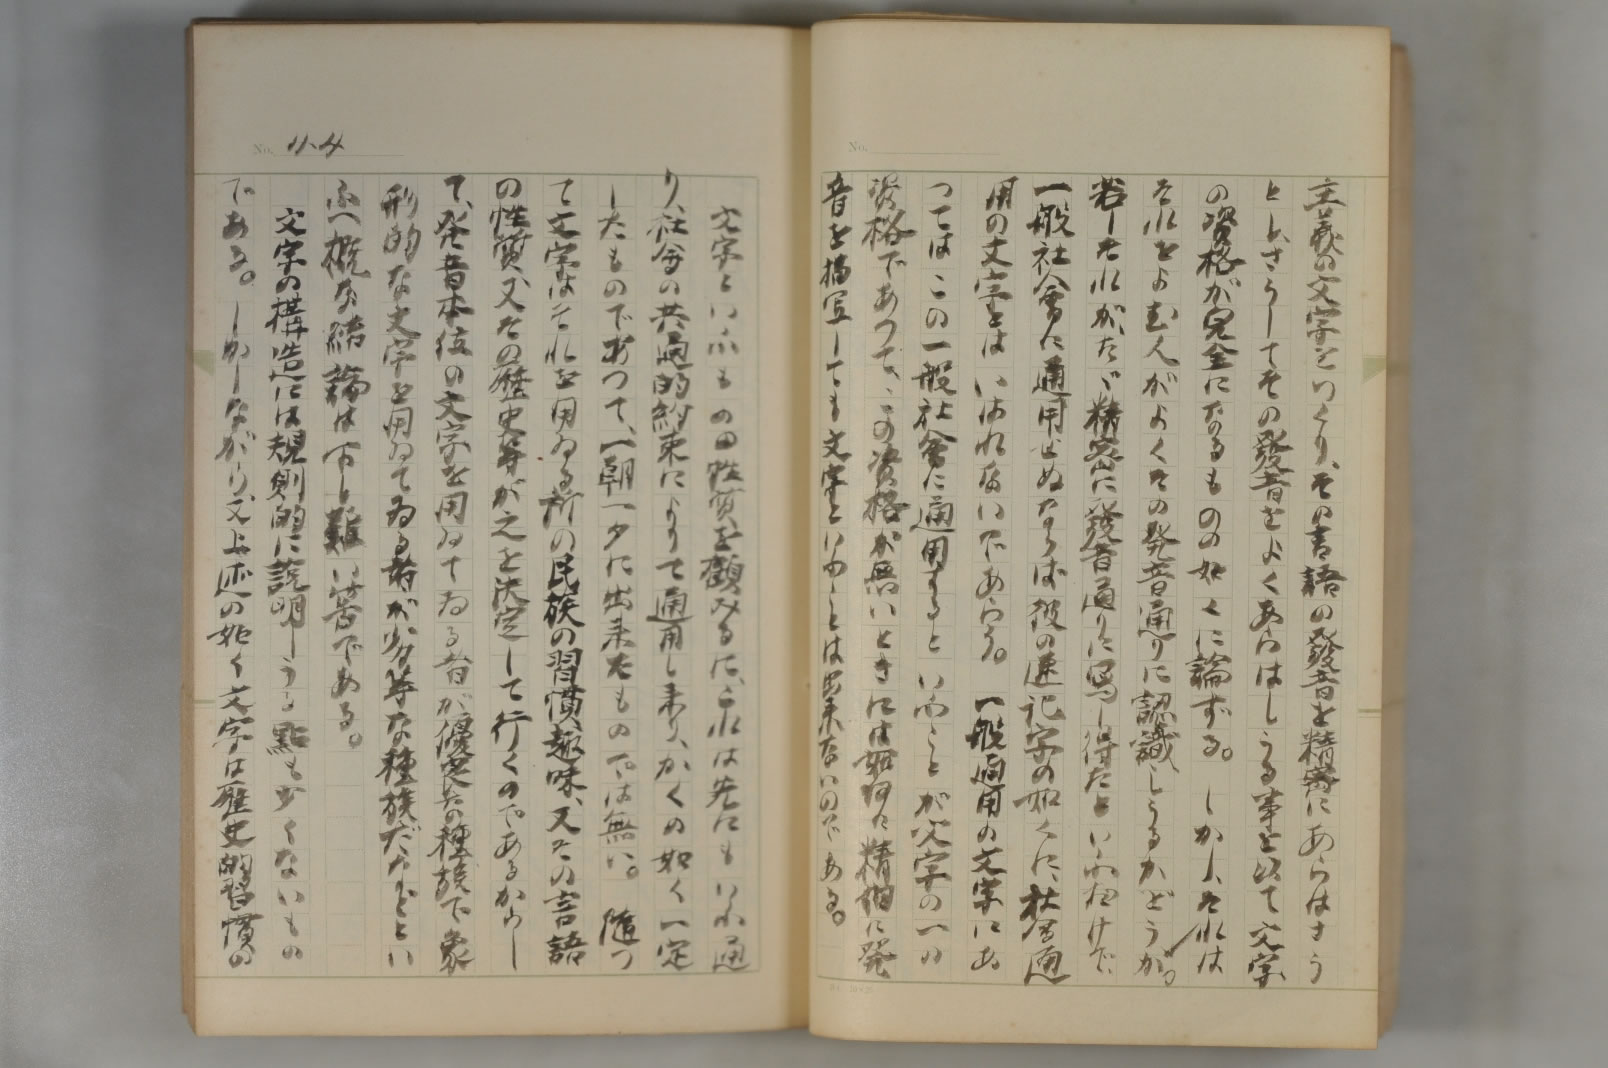 No.
主義の文字をつくり、その書語の發音を精密にあらはさう
とし、さうしてその發音をよくあらはしうる事を以て文字
の資格が完全になるものの如くに論ずる。しかし、それは
それをよむ人がよくその発音通りに認識しうるかどうか。
若しそれが、たゞ精密に發音通りに寫し得たといふだけで、
一般社會に通用せぬならば彼の速記字の如くに、社會通
用の文字とはいはれないであらう。一般通用の文字にあ
つてはこの一般社會に通用するといふことが文字の一の
資格であつて、この資格が無いときには如何に精細に発
音を描写しても文字といふことは出来ないのである。
No. 11.4
文字といふものの性質を顧みるに、これは先にもいふ通
り、社會の共通的約束によりて通用し来り、かくの如く一定
したものであつて、一朝一夕に出来たものでは無い。隨つ
て文字はそれを用ゐる所の民族の習慣、趣味、又その言語
の性質、又その歴史等が之を決定して行くのであるからし
て、発音本位の文字を用ゐてゐる者が優秀な種族で象
形的な文字を用ゐてゐる者が劣等な種族だなどとい
ふ概な結論は下し難い筈である。
文字の構造には規則的に説明しうる點も少くないもの
である。しかしながら、又上述の如く文字は歴史的習慣の